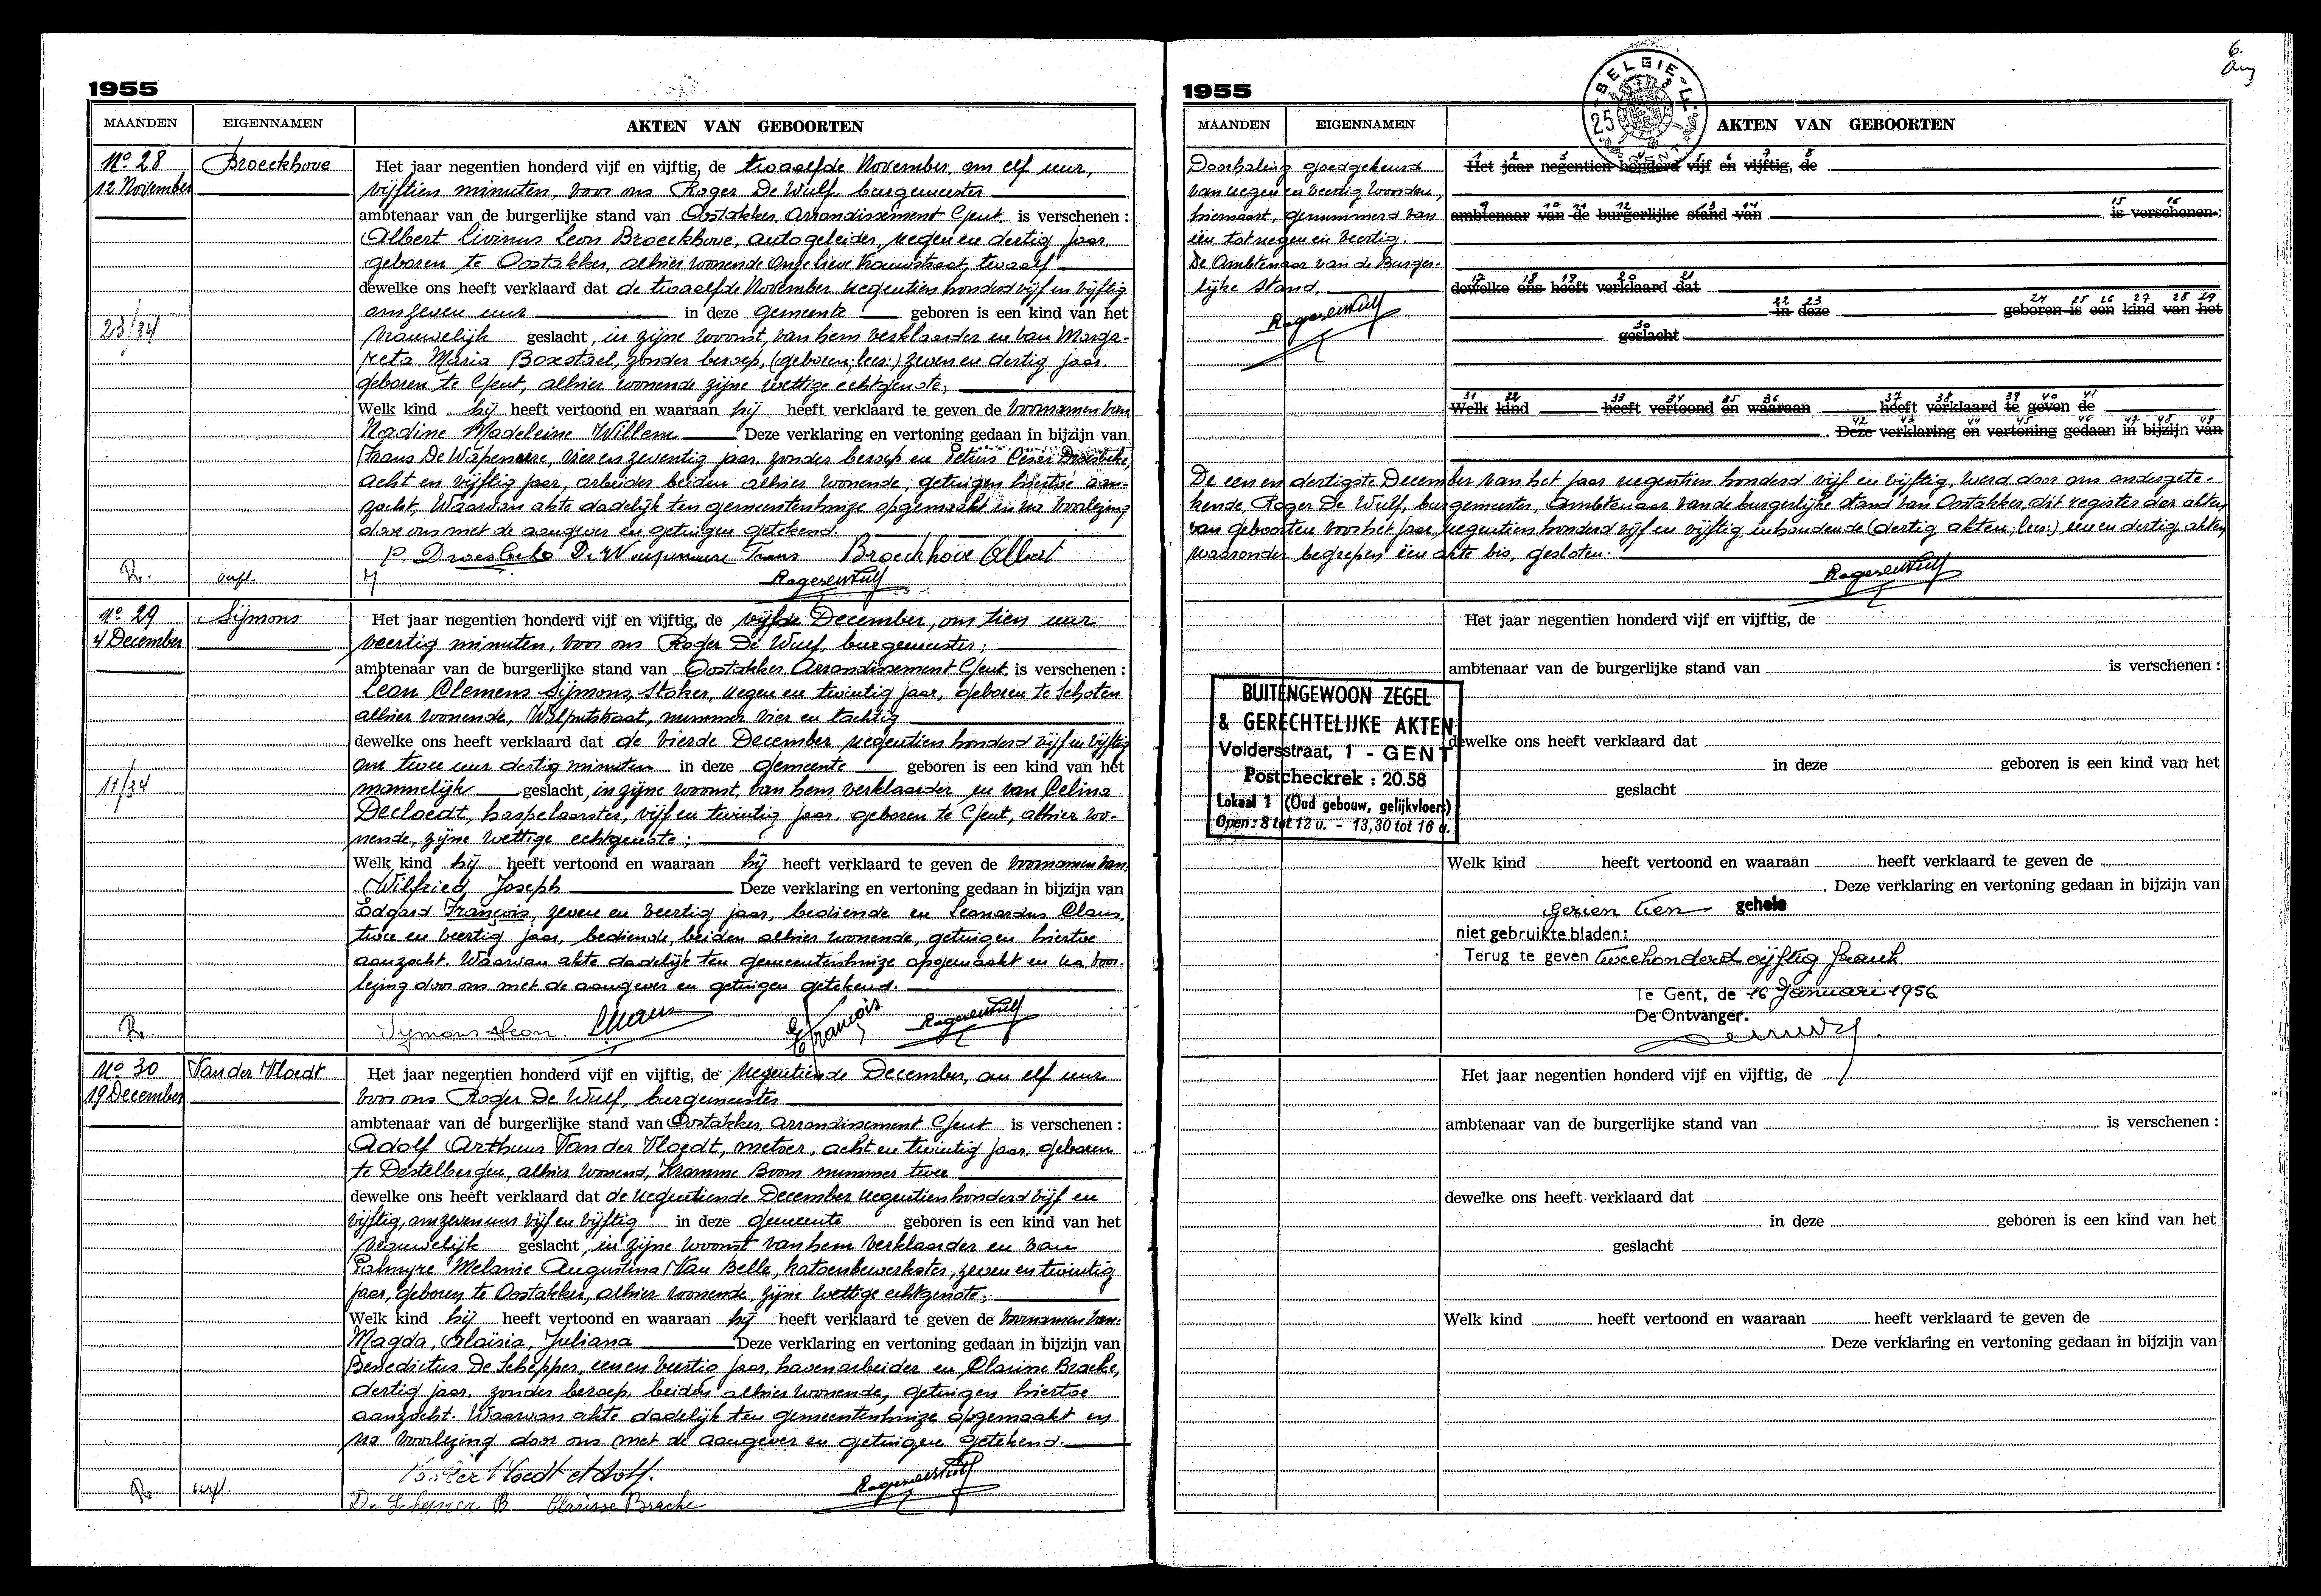 1955
MAANDEN EIGENNAMEN AKTEN VAN GEBOORTEN
No 28 Broeckhove
12 November
Het jaar negentien honderd vijf en vijftig, de twaalfde November, om elf uur,
vijftien minuten, voor ons Roger De Wulf, burgemeester
ambtenaar van de burgerlijke stand van Oostakker, Arrondissement Gent, is verschenen :
Albert Livinus Leon Broeckhove, autogeleider, negen en dertig jaar
geboren te Oostakker, alhier wonende Onze Lieve Vrouwstraat, twaalf
dewelke ons heeft verklaard dat de twaalfde November negentien honderd vijf en vijftig
om zeven uur in deze gemeente geboren is een kind van het
23/34
vrouwelijk geslacht, in zijne woonst, van hem verklaarder en van Marga-
reta Maria Boxstael, zonder beroep, (geboren; lees:) zeven en dertig jaar
geboren te Gent, alhier wonende zijne wettige echtgenote;
Welk kind hij heeft vertoond en waaraan hij heeft verklaard te geven de voornamen van
Nadine Madeleine Willem Deze verklaring en vertoning gedaan in bijzijn van
Frans De Wispeneire, vier en zeventig jaar, zonder beroep en Petrus Droesbeke,
acht en vijftig jaar, arbeider beiden alhier wonende, getuigen hiertoe aan-
zocht. Waarvan akte dadelijk ten gemeentenhuize opgemaakt en na voorlezing
door ons met de aangever en getuigen getekend.
P Droesbeke De Wispeneire Frans Broeckhove Albert
R. verpl. Roger De Wulf
No 29 Sijmons
4 December
Het jaar negentien honderd vijf en vijftig, de vijfde December, om tien uur
veertig minuten, voor ons Roger De Wulf, burgemeester;
ambtenaar van de burgerlijke stand van Oostakker, Arrondissement Gent, is verschenen :
Leon Clemens Sijmons, Stoker, negen en twintig jaar, geboren te Schoten
alhier wonende, Wolfputstraat, nummer vier en tachtig
dewelke ons heeft verklaard dat de vierde December negentien honderd vijf en vijftig
om twee uur dertig minuten in deze gemeente geboren is een kind van het
11/34
mannelijk geslacht, in zijne woonst, van hem verklaarder en van Celina
Decloedt, haspelaarster, vijf en twintig jaar, geboren te Gent, alhier wo-
nende, zijne wettige echtgenote;
Welk kind hij heeft vertoond en waaraan hij heeft verklaard te geven de voornamen van
Wilfried Joseph Deze verklaring en vertoning gedaan in bijzijn van
Edgard François, zeven en veertig jaar, bediende en Leonardus Claus,
twee en veertig jaar, bediende, beiden alhier wonende, getuigen hiertoe
aanzocht. Waarvan akte dadelijk ten gemeentenhuize opgemaakt en na voor-
lezing door ons met de aangever en getuigen getekend.
R. Sijmons Leon. LClaus E François Roger De Wulf
No 30 Van der Vloedt
19 December
Het jaar negentien honderd vijf en vijftig, de negentiende December, om elf uur
voor ons Roger De Wulf, burgemeester
ambtenaar van de burgerlijke stand van Oostakker, Arrondissement Gent is verschenen :
Adolf Arthuur Van der Vloedt, metser, acht en twintig jaar, geboren
te Destelbergen, alhier wonend, Kromme Boom nummer twee
dewelke ons heeft verklaard dat de negentiende December negentien honderd vijf en
vijftig, om zeven uur vijf en vijftig in deze gemeente geboren is een kind van het
vrouwelijk geslacht, in zijne woonst van hem verklaarder en van
Palmyre Melanie Augustina Van Belle, katoenbewerkster, zeven en twintig
jaar, geboren te Oostakker, alhier wonende, zijne wettige echtgenote;
Welk kind hij heeft vertoond en waaraan hij heeft verklaard te geven de voornamen van
Magda, Aloïsia, Juliana Deze verklaring en vertoning gedaan in bijzijn van
Benedictus De Schepper, een en veertig jaar, havenarbeider en Clarisse Bracke,
dertig jaar, zonder beroep, beiden alhier wonende, getuigen hiertoe
aanzocht. Waarvan akte dadelijk ten gemeentenhuize opgemaakt en
na voorlezing door ons met de aangever en getuigen getekend.
Van der Vloedt Adolf. Roger De Wulf
R. verpl. De Schepper B Clarisse Bracke
6.
1955
BELGIE
25
GENT
MAANDEN EIGENNAMEN AKTEN VAN GEBOORTEN
Doorhaling goedgekeurd
van negen en veertig woorden,
hiernaast, genummerd van
één tot negen en veertig.
De Ambtenaar van de Burger-
lijke Stand,
Roger De Wulf
1 2 3 4 5 6 7 8
Het jaar negentien honderd vijf en vijftig, de
9 10 11 12 13 14 15 16
ambtenaar van de burgerlijke stand van is verschenen :
17 18 19 20 21
dewelke ons heeft verklaard dat
22 23 24 25 26 27 28 29
in deze geboren is een kind van het
30
geslacht
31 32 33 34 35 36 37 38 39 40 41
Welk kind heeft vertoond en waaraan heeft verklaard te geven de
42 43 44 45 46 47 48 49
. Deze verklaring en vertoning gedaan in bijzijn van
De een en dertigste December van het jaar negentien honderd vijf en vijftig, werd door ons ondergete-
kende, Roger De Wulf, burgemeester, Ambtenaar van de burgerlijke stand van Oostakker, dit register der akten
van geboorten voor het jaar negentien honderd vijf en vijftig, inhoudende (dertig akten; lees:) een en dertig akten,
waaronder begrepen één akte bis, gesloten.
Roger De Wulf
Het jaar negentien honderd vijf en vijftig, de
ambtenaar van de burgerlijke stand van is verschenen :
BUITENGEWOON ZEGEL
& GERECHTELIJKE AKTEN
Voldersstraat, 1 - GENT
Postcheckrek : 20.58
Lokaal 1 (Oud gebouw, gelijkvloers)
Open : 8 tot 12 u. - 13,30 tot 16 u.
dewelke ons heeft verklaard dat
in deze geboren is een kind van het
geslacht
Welk kind heeft vertoond en waaraan heeft verklaard te geven de
. Deze verklaring en vertoning gedaan in bijzijn van
Gezien tien gehele
niet gebruikte bladen:
Terug te geven tweehonderd vijftig frank
Te Gent, de 16 Januari 1956
De Ontvanger.
Het jaar negentien honderd vijf en vijftig, de
ambtenaar van de burgerlijke stand van is verschenen :
dewelke ons heeft verklaard dat
in deze geboren is een kind van het
geslacht
Welk kind heeft vertoond en waaraan heeft verklaard te geven de
. Deze verklaring en vertoning gedaan in bijzijn van